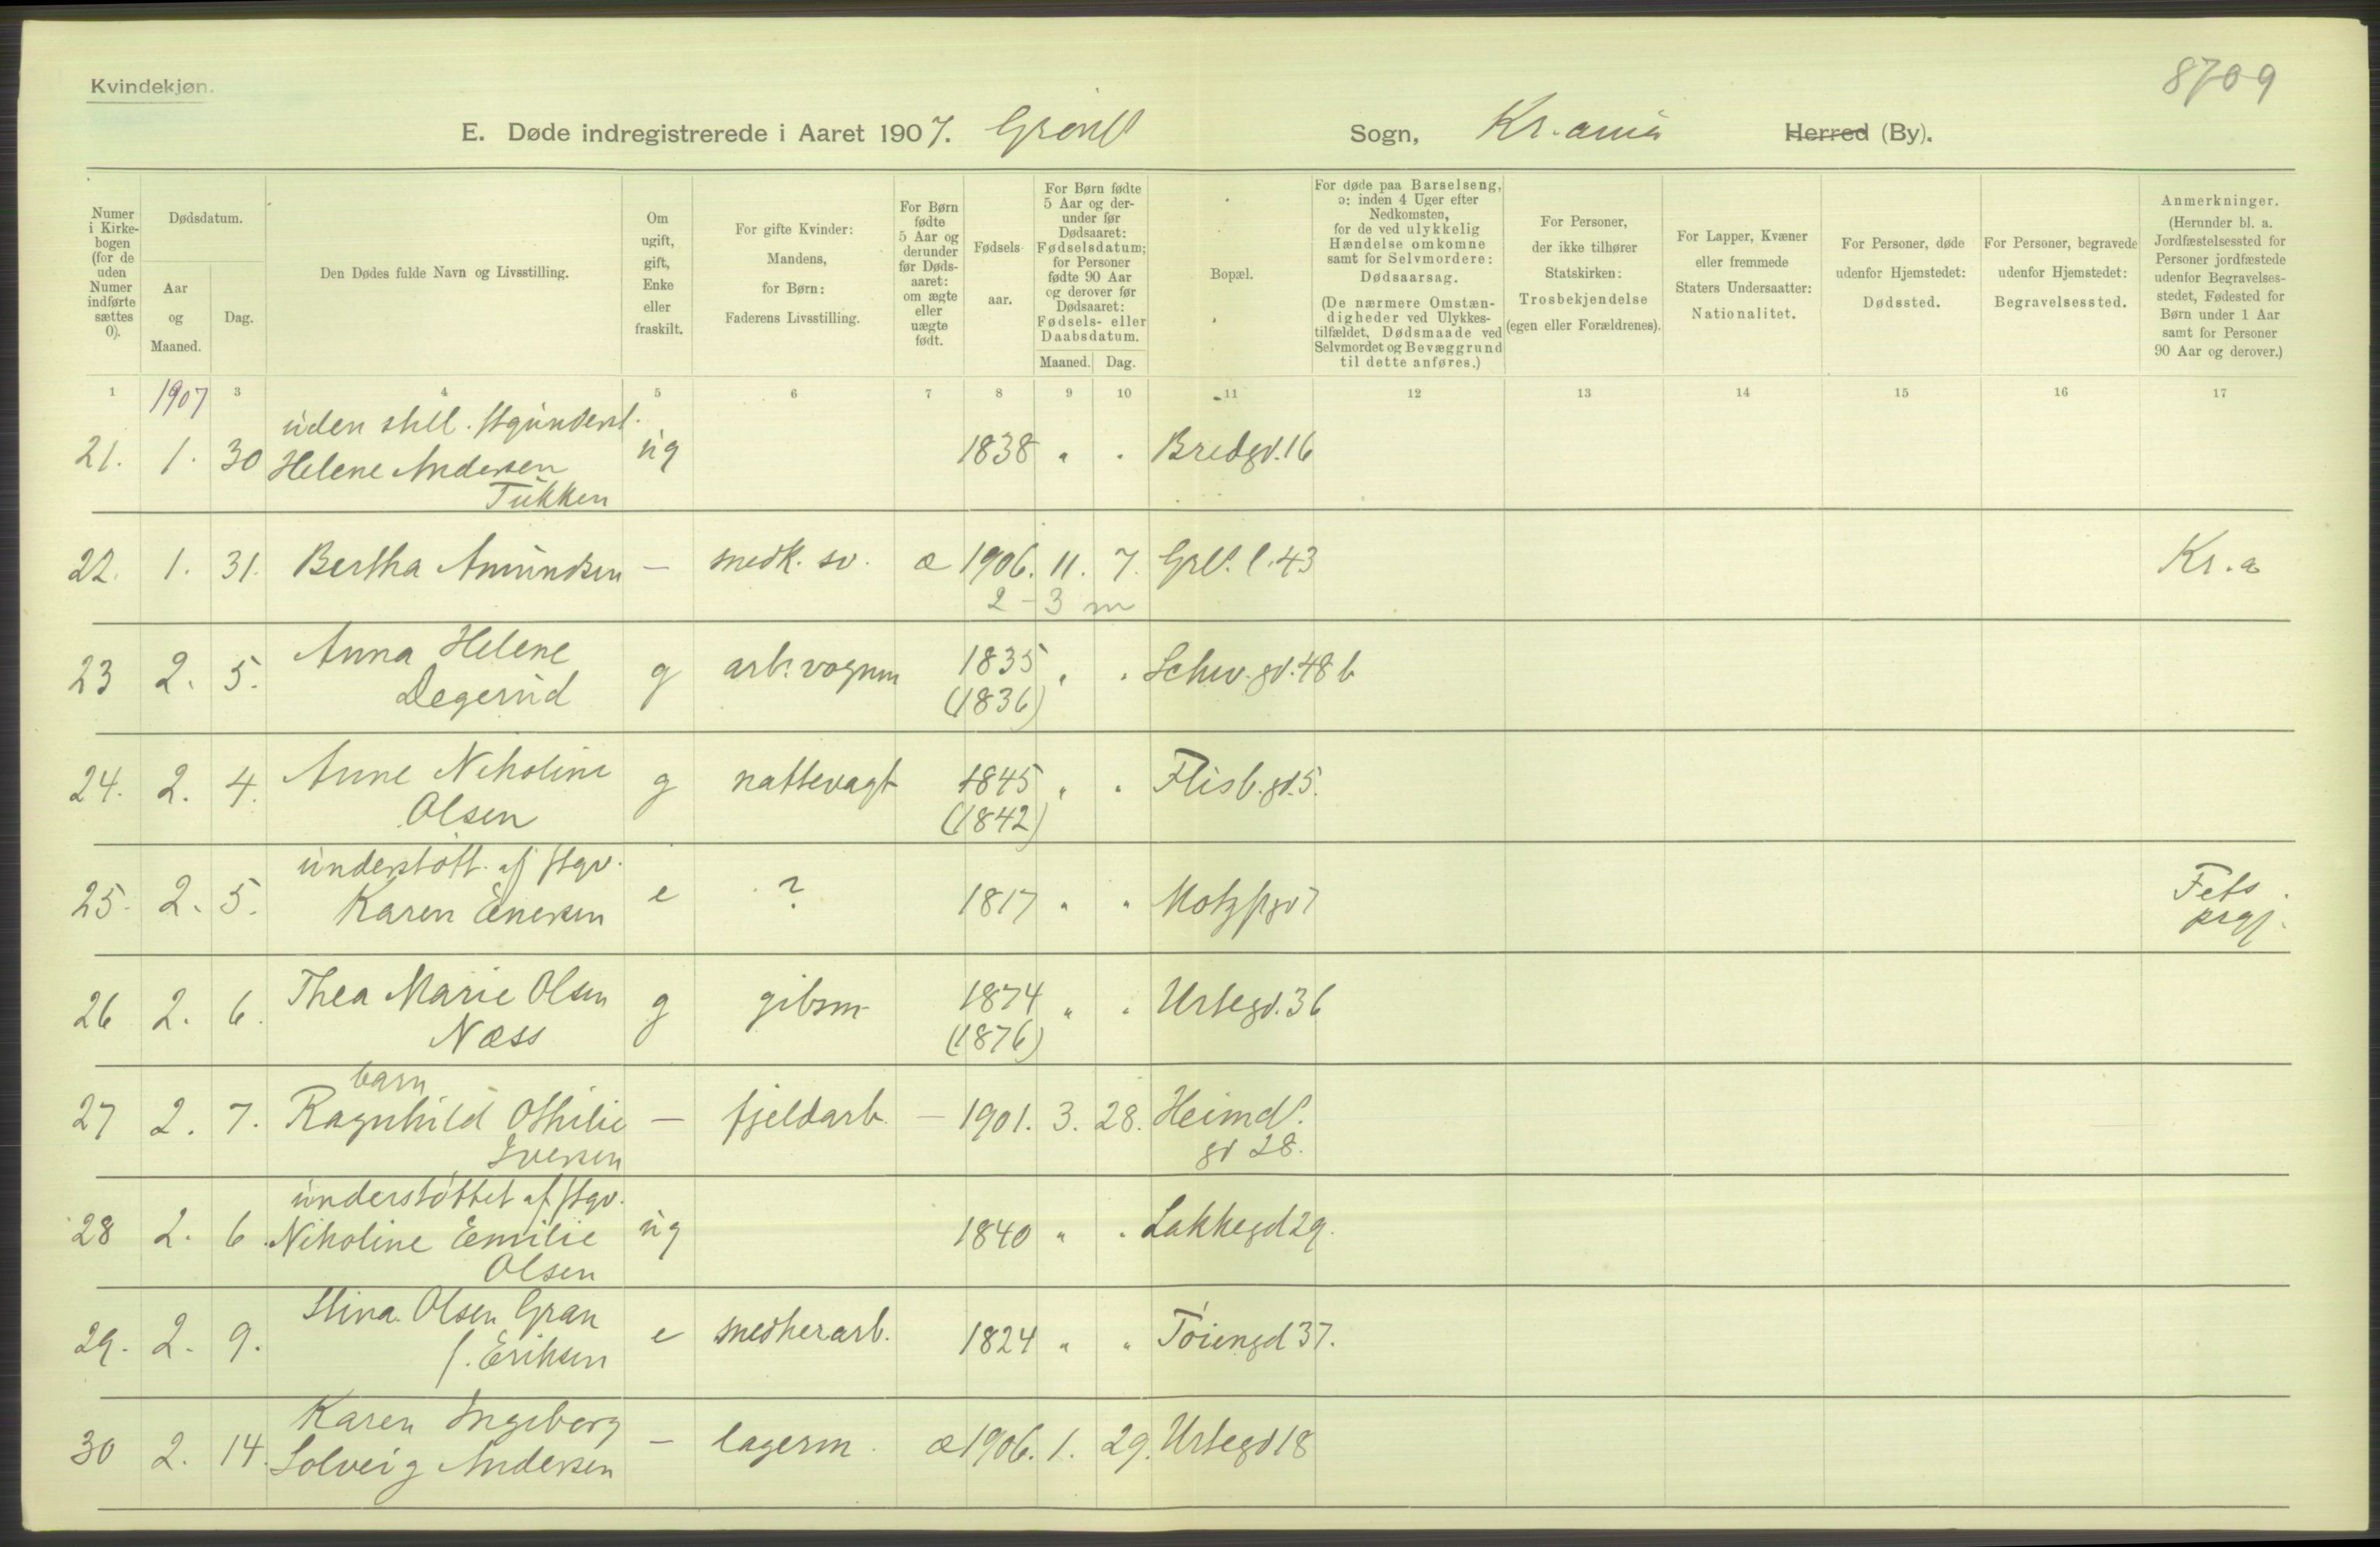 Kvindekjøn.
8709
E. Døde indregistrerede i Aaret 1907. Grønl Sogn, Kr.ania Herred (By).
Numer i Kirkebogen (for de uden Numer indførte sættes 0).
Dødsdatum.
Aar og Maaned.
Dag.
Den Dødes fulde Navn og Livsstilling.
Om ugift, gift, Enke eller fraskilt.
For gifte Kvinder: Mandens, for Børn: Faderens Livsstilling.
For Børn fødte 5 Aar og derunder før Dødsaaret: om ægte eller uægte født.
Fødselsaar.
For Børn fødte 5 Aar og derunder før Dødsaaret: Fødselsdatum; for Personer fødte 90 Aar og derover før Dødsaaret: Fødsels- eller Daabsdatum.
Maaned. Dag.
Bopæl.
For døde paa Barselseng, ɔ: inden 4 Uger efter Nedkomsten, for de ved ulykkelig Hændelse omkomne samt for Selvmordere: Dødsaarsag.
(De nærmere Omstændigheder ved Ulykkestilfældet, Dødsmaade ved Selvmordet og Bevæggrund til dette anføres.)
For Personer, der ikke tilhører Statskirken: Trosbekjendelse (egen eller Forældrenes).
For Lapper, Kvæner eller fremmede Staters Undersaatter: Nationalitet.
For Personer, døde udenfor Hjemstedet: Dødssted.
For Personer, begravede udenfor Hjemstedet: Begravelsessted.
Anmerkninger. (Herunder bl. a. Jordfæstelsessted for Personer jordfæstede udenfor Begravelsesstedet, Fødested for Børn under 1 Aar samt for Personer 90 Aar og derover.)
1 3 4 5 6 7 8 9 10 11 12 13 14 15 16 17
1907
uden still.
21. 1. 30 Helene Andersen ug 1838 " " Bredgd. 16
Tukken
22. 1. 31. Bertha Amundsen — snedk. sv. æ 1906. 11. 7. Grl. l. 43 Kr.a
2-3 m
23 2. 5. Anna Helene g arb. vognm 1835 " " Schw. gd. 48 b
Degerud (1836)
24. 2. 4. Anne Nikoline g nattevagt 1845 " " Flisb. gd. 5.
Olsen (1842)
understøtt. af ftgv.
25. 2. 5. Karen Enersen e ? 1817 " " Motzfgd 7 Fets
prgj.
26 2. 6. Thea Marie Olsen g gibsm 1874 " " Urtegd. 36
Næss (1876)
barn
27 2. 7. Ragnhild Othilie — fjeldarb. — 1901. 3. 28. Heimdl.
Iversen gd 28.
understøttet af ftgv.
28 2. 6. Nikoline Emilie ug 1840 " " Lakkegd 29.
Olsen
29. 2. 9. Stina Olsen Gran e snedkerarb. 1824 " " Tøiengd 37.
f. Eriksen
Karen Ingeborg
30 2. 14. Solveig Andersen — lagerm. æ 1906. 1. 29. Urtegd 18